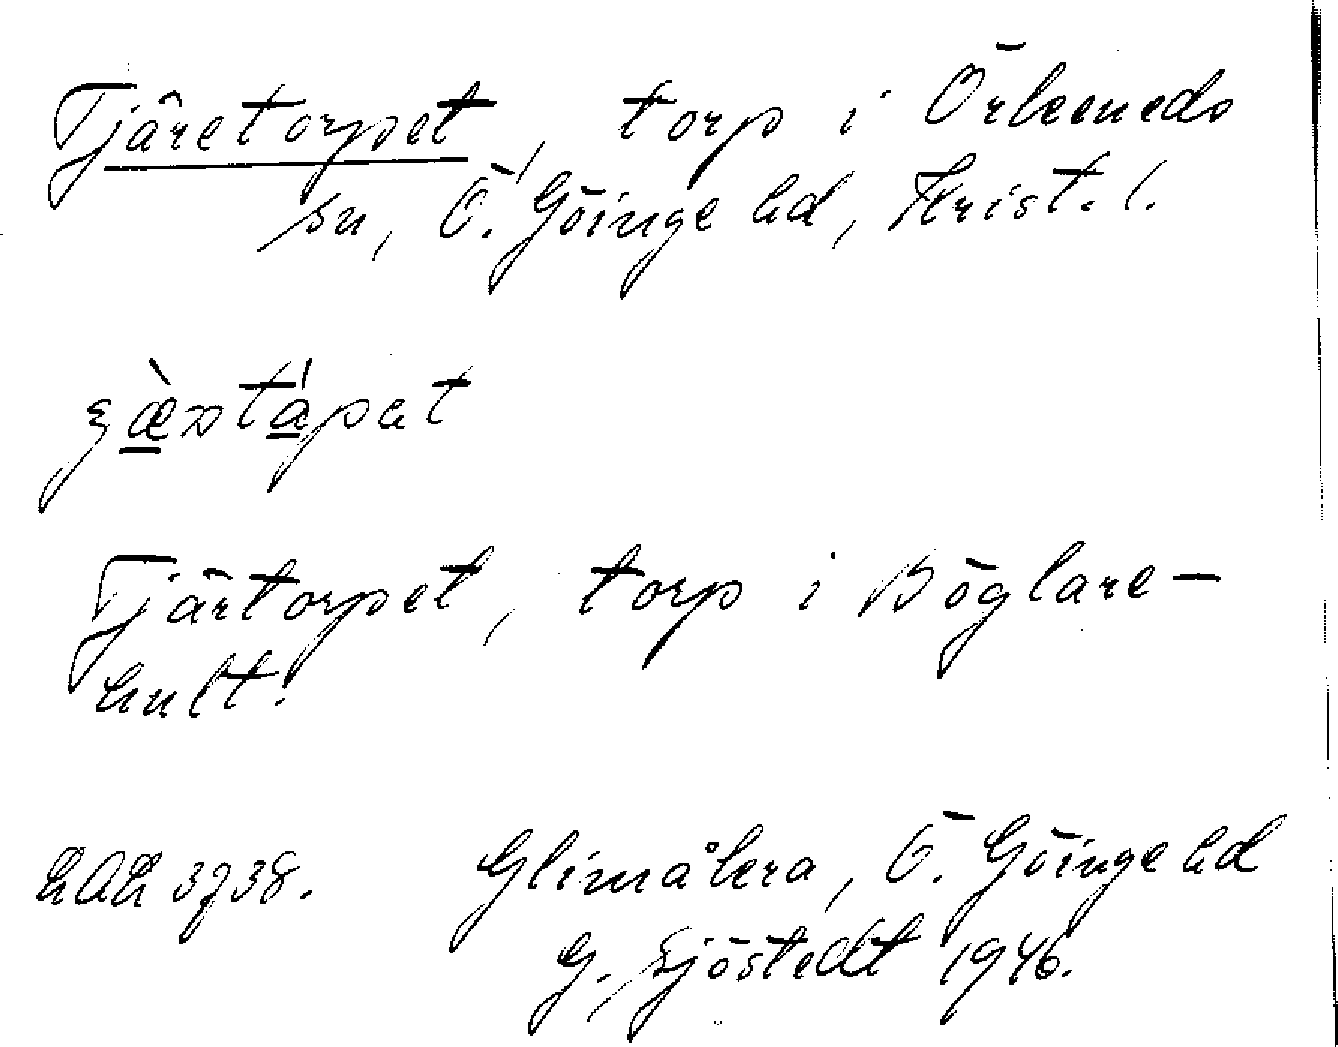 Tjäretorpet, torp i Örkeneds
sn, Ö. Göinge hd, Krist. l.
Tjärtorpet, torp i Böglare-
hult.
Glimåkra, Ö. Göinge hd
G. Sjöstedt 1946.